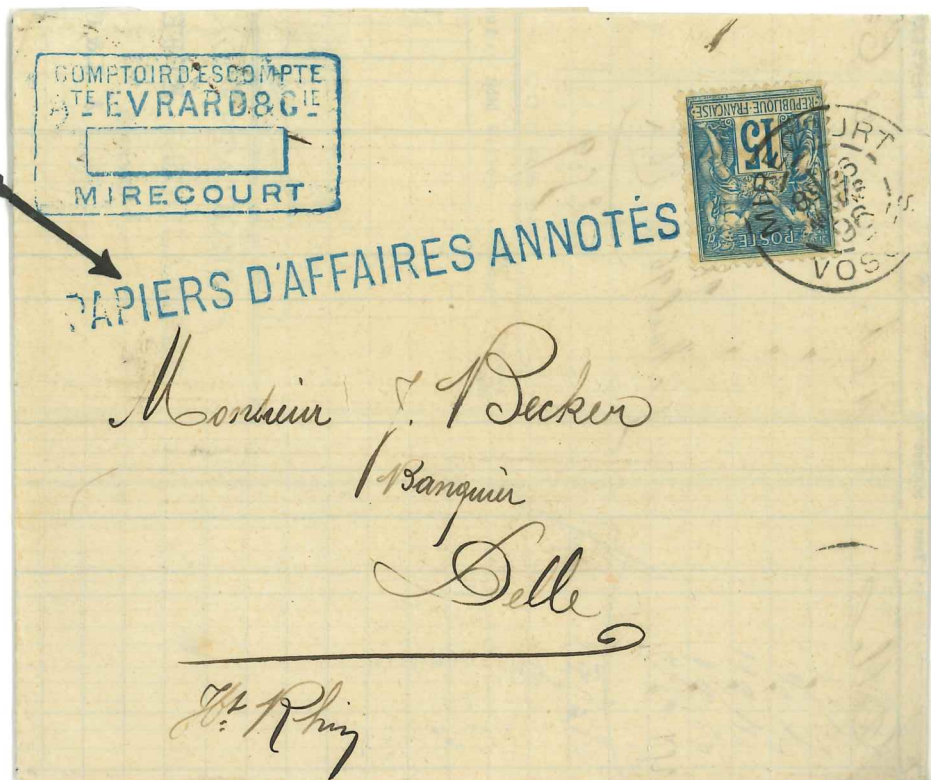 COMPTOIR D'ESCOMPTE
ATE EVRARD & CIE
MIRECOURT
REPUBLIQUE FRANCAISE
15
POSTE
VOSGES
96
PAPIERS D'AFFAIRES ANNOTÉS
Monsieur J. Becker
Banquier
Delle
Ht Rhin